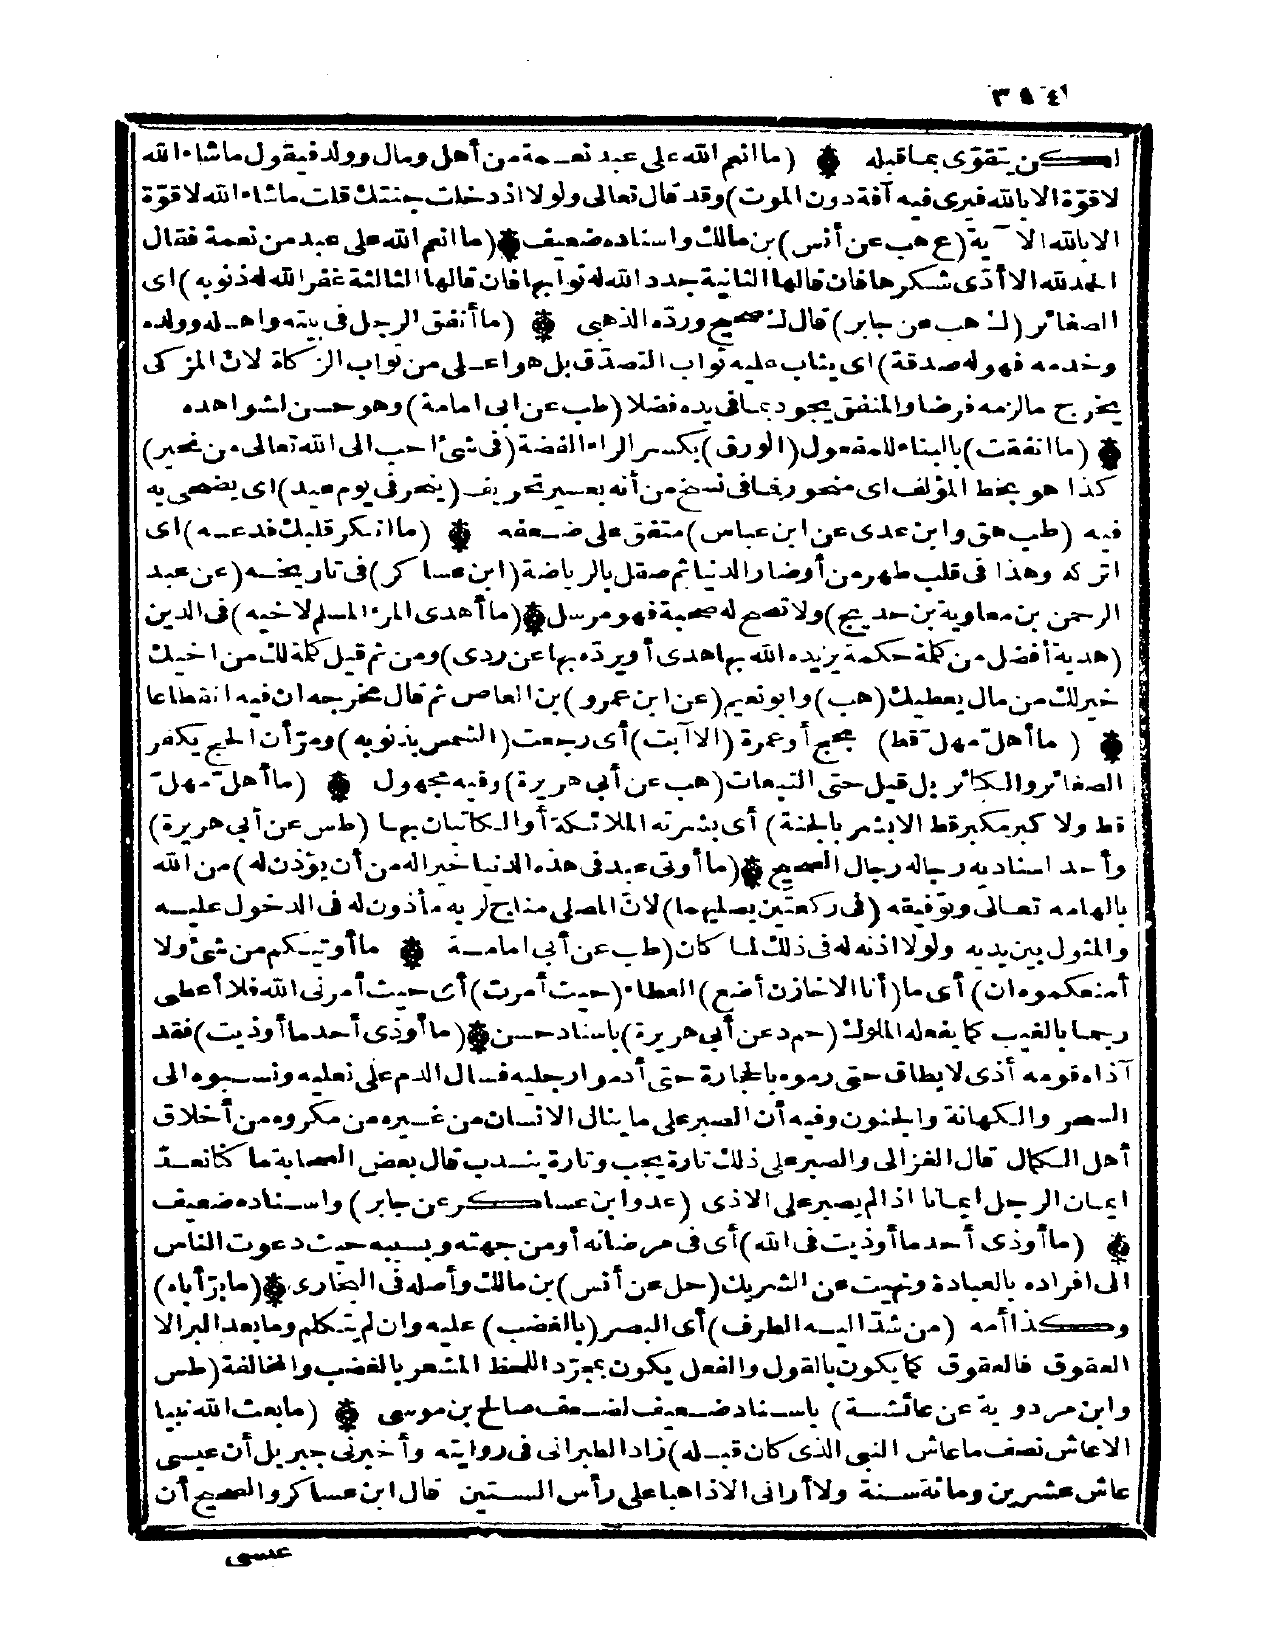 ٣٥٤
لكن يتقوى بما قبله (ما أنعم الله على عبد نعمة من أهل ومال وولد فيقول ما شاء الله
لا قوّة الا بالله فيرى فيه آفة دون الموت) وقد قال تعالى ولولا اذ دخلت جنتك قلت ما شاء الله لا قوّة
الا بالله الآية (ع هب عن أنس) بن مالك واسناده ضعيف (ما انعم الله على عبد من نعمة فقال
الحمد لله الا أدّى شكرها فان قالها الثانية جدد الله له ثوابها فان قالها الثالثة غفر الله له ذنوبه) اى
الصغائر (ك هب عن جابر) قال ك صحيح وردّه الذهبي (ما أنفق الرجل فى بيته واهله وولده
وخدمه فهو له صدقة) اى يثاب عليه ثواب التصدّق بل هو اعلى من ثواب الزكاة لانّ المزكى
يخرج ما لزمه فرضا والمنفق يجود بما فى يده فضلا (طب عن ابى امامة) وهو حسن لشواهده
(ما انفقت) بالبناء للمفعول (الورق) بكسر الراء الفضة (فى شئ احب الى الله تعالى من نحير)
كذا هو بخط المؤلف اى منحور فما فى نسخ من أنه بعير تحريف (ينحر فى يوم عيد) اى يضحى به
فيه (طب هق وابن عدى عن ابن عباس) متفق على ضعفه (ما انكر قلبك فدعه) اى
اتركه وهذا فى قلب طهر من أوضار الدنيا ثم صقل بالرياضة (ابن عساكر) فى تاريخه (عن عبد
الرحمن بن معاوية بن حديج) ولا تصح له صحبة فهو مرسل (ما أهدى المرء المسلم لاخيه) فى الدين
(هدية أفضل من كلمة حكمة يزيده الله بها هدى أو يردّه بها عن ردى) ومن ثم قيل كلمة لك من اخيك
خير لك من مال يعطيك (هب) وابو نعيم (عن ابن عمرو) بن العاص ثم قال مخرجه ان فيه انقطاعا
(ما أهلّ مهلّ قط) بحج أو عمرة (الا آبت) أى رجعت (الشمس بذنوبه) ومرّ أن الحج يكفر
الصغائر والكبائر بل قيل حتى التبعات (هب عن أبي هريرة) وفيه مجهول (ما أهلّ مهلّ
قط ولا كبر مكبر قط الا بشر بالجنة) أى بشرته الملائكة أو الكاتبان بها (طس عن أبي هريرة)
وأحد اسناديه رجاله رجال الصحيح (ما أوتى عبد فى هذه الدنيا خيرا له من أن يؤذن له) من الله
بالهامه تعالى وتوفيقه (فى ركعتين يصليهما) لانّ المصلى مناج لربه مأذون له فى الدخول عليه
والمثول بين يديه ولولا اذنه له فى ذلك لما كان (طب عن أبي امامة) ما أوتيكم من شئ ولا
أمنعكموه ان) أى ما (أنا الا خازن أضع) العطاء (حيث أمرت) أى حيث أمرنى الله فلا أعطى
رجما بالغيب كما يفعله الملوك (حم د عن أبي هريرة) باسناد حسن (ما أوذى أحد ما أوذيت) فقد
آذاه قومه أذى لا يطاق حتى رموه بالحجارة حتى أدموا رجليه فسال الدم على نعليه ونسبوه الى
السحر والكهانة والجنون وفيه أن الصبر على ما ينال الانسان من غيره من مكروه من أخلاق
أهل الكمال قال الغزالى والصبر على ذلك تارة يجب وتارة يندب قال بعض الصحابة ما كنا نعدّ
ايمان الرجل ايمانا اذا لم يصبر على الاذى (عد وابن عساكر عن جابر) واسناده ضعيف
(ما أوذى أحد ما أوذيت فى الله) أى فى مرضاته أو من جهته وبسببه حيث دعوت الناس
الى افراده بالعبادة ونهيت عن الشريك (حل عن أنس) بن مالك وأصله فى البخارى (ما برّ أباه)
وكذا أمه (من شدّ اليه الطرف) أى البصر (بالغضب) عليه وان لم يتكلم وما بعد البر الا
العقوق فالعقوق كما يكون بالقول والفعل يكون بمجرّد اللحظ المشعر بالغضب والمخالفة (طس
وابن مردويه عن عائشة) باسناد ضعيف لضعف صالح بن موسى (ما بعث الله نبيا
الا عاش نصف ما عاش النبى الذى كان قبله) زاد الطبرانى فى روايته وأخبرنى جبريل أن عيسى
عاش عشرين ومائة سنة ولا أرانى الا ذاهبا على رأس الستين قال ابن عساكر والصحيح أن
عيسى